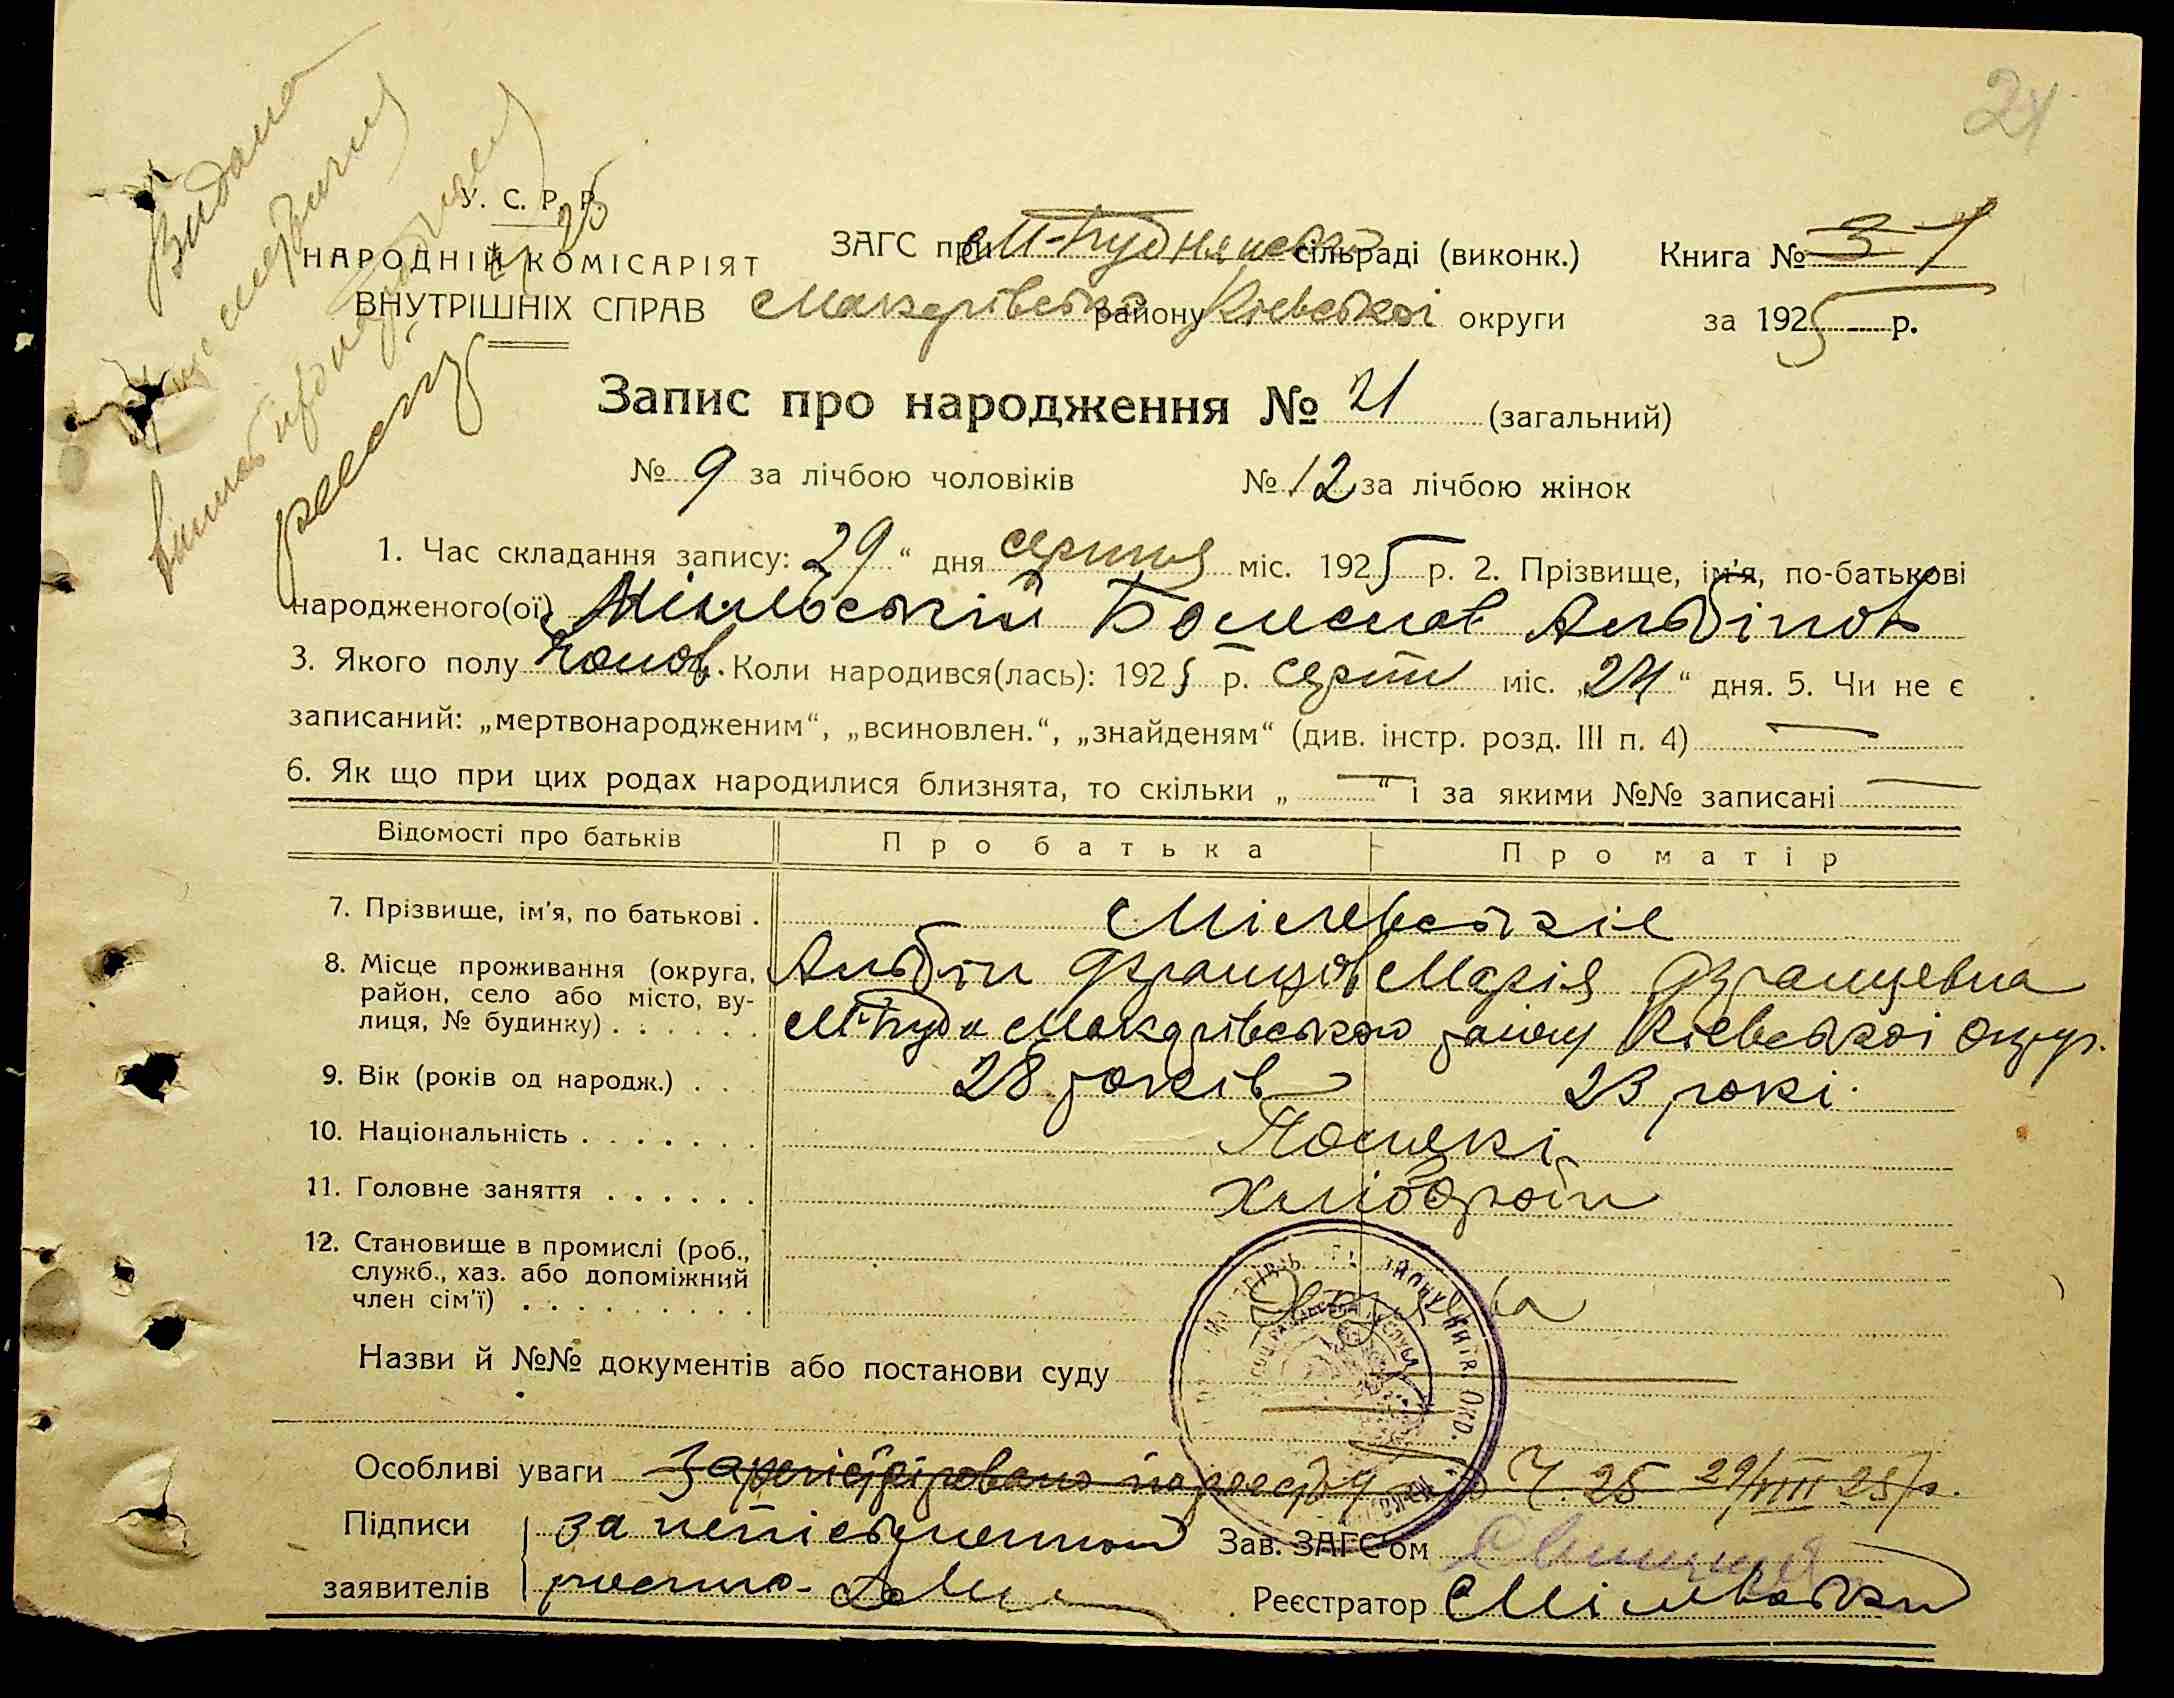 24
Видано
У. С. Р. Р.
НАРОДНІЙ КОМІСАРІЯТ
ВНУТРІШНІХ СПРАВ
ЗАГС при М-Руднянській сільраді (виконк.) Книга № 3 1
Макарівськ району Київської округи за 1925 р.
Запис про народження № 21 (загальний)
№ 9 за лічбою чоловіків № 12 за лічбою жінок
1. Час складання запису: 29 “ дня серпня міс. 1925 р. 2. Прізвище, ім'я, по-батькові
народженого(ої) Мілевський Болеслав Альбінов
3. Якого полу чолов. Коли народився(лась): 1925 р. серпн міс. „24“ дня. 5. Чи не є
записаний: „мертвонародженим“, „всиновлен.“, „знайденям“ (див. інстр. розд. III п. 4)
6. Як що при цих родах народилися близнята, то скільки „ “ і за якими №№ записані
Відомості про батьків Про батька Про матір
7. Прізвище, ім'я, по батькові . Мілевські
8. Місце проживання (округа, Альбін Францов Марія Францевна
район, село або місто, ву-
лиця, № будинку) . . . . . . М-Рудн Макарівського району Киевської округ.
9. Вік (років од народж.) . . 28 років 23 рокі.
10. Національність . . . . . . . Поляки
11. Головне заняття . . . . . . Хлібороби
12. Становище в промислі (роб.,
служб., хаз. або допоміжний
член сім'ї) . . . . . . . . .
Назви й №№ документів або постанови суду
Особливі уваги Зареєстровано по реєстру Ч. 25 29/VIII 25 р.
Підписи за неписьменного Зав. ЗАГС'ом
заявителів росписа- Реєстратор Мілевський